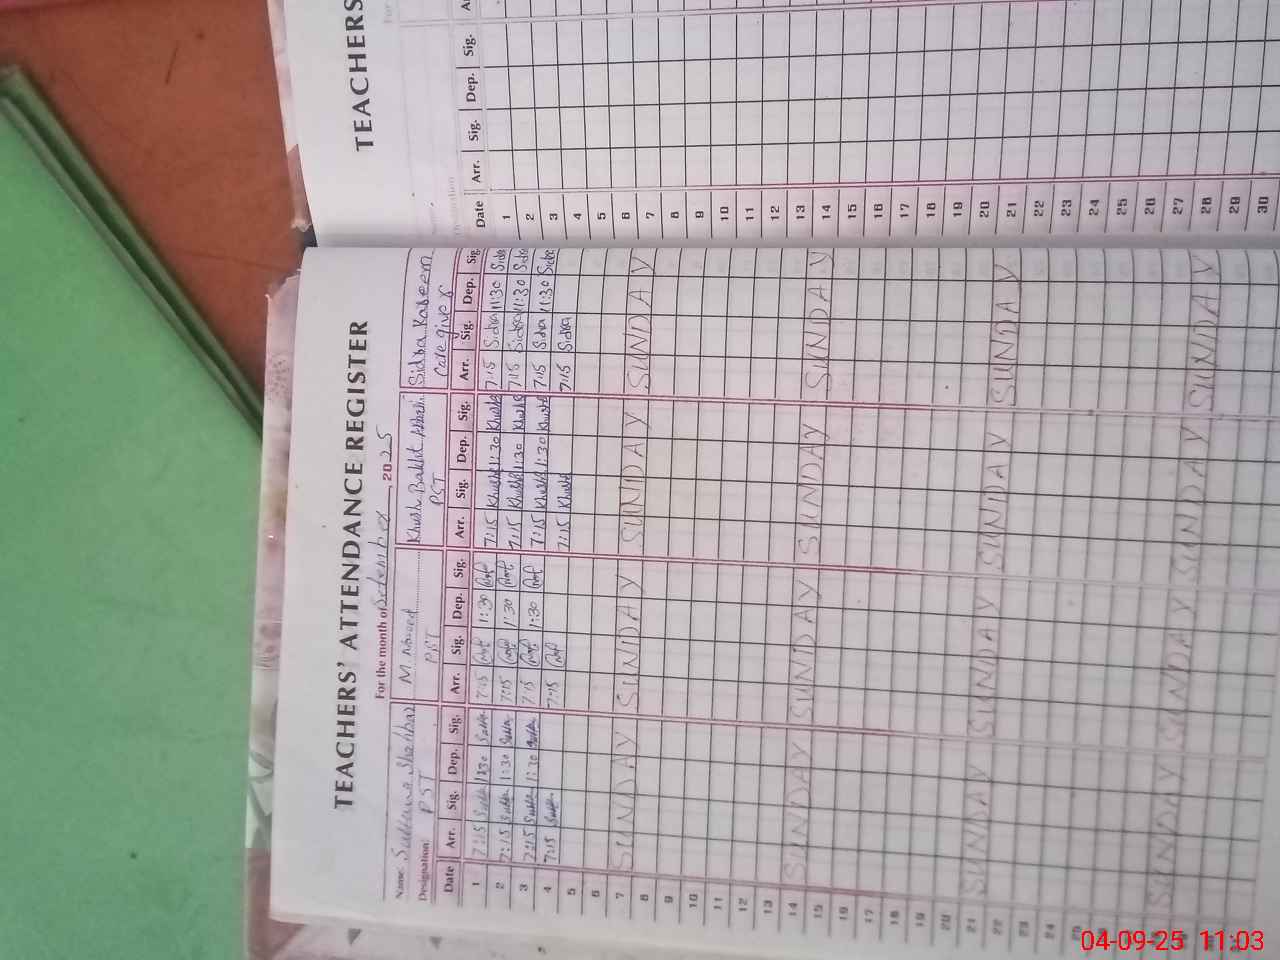 TEACHERS' ATTENDANCE REGISTER
For the month of September, 2025
Name: Sultana Shahbaz M. Naveed Khush Bakht Sidra Kareem
Designation: PST PST PST Care giver
Date Arr. Sig. Dep. Sig. Arr. Sig. Dep. Sig. Arr. Sig. Dep. Sig. Arr. Sig. Dep. Sig.
1 7:15 1:30 7:15 1:30 7:15 Khush 1:30 Khush 7:15 Sidra 11:30 Sidra
2 7:15 1:30 7:15 1:30 7:15 Khush 1:30 Khush 7:15 Sidra 11:30 Sidra
3 7:15 1:30 7:15 1:30 7:15 Khush 1:30 Khush 7:15 Sidra 11:30 Sidra
4 7:15 7:15 7:15 Khush 7:15 Sidra
5
6
7 SUNDAY SUNDAY SUNDAY SUNDAY
8
9
10
11
12
13
14 SUNDAY SUNDAY SUNDAY SUNDAY
15
16
17
18
19
20
21 SUNDAY SUNDAY SUNDAY SUNDAY
22
23
24
25
SUNDAY SUNDAY SUNDAY SUNDAY
TEACHERS
Date Arr. Sig. Dep. Sig.
1
2
3
4
5
6
7
8
9
10
11
12
13
14
15
16
17
18
19
20
21
22
23
24
25
26
27
28
29
30
04-09-25 11:03